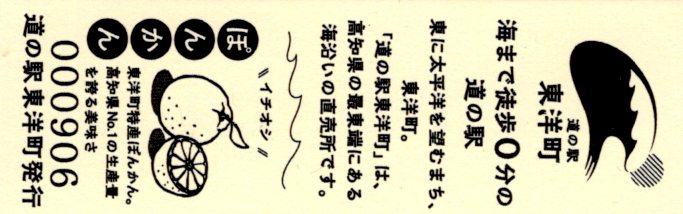 道の駅
東洋町
海まで徒歩0分の
道の駅
東に太平洋を望むまち、
東洋町。
「道の駅東洋町」は、
高知県の最東端にある
海沿いの直売所です。
イチオシ
ぽんかん
東洋町特産ぽんかん。
高知県No.1の生産量
を誇る美味さ
000906
道の駅東洋町発行